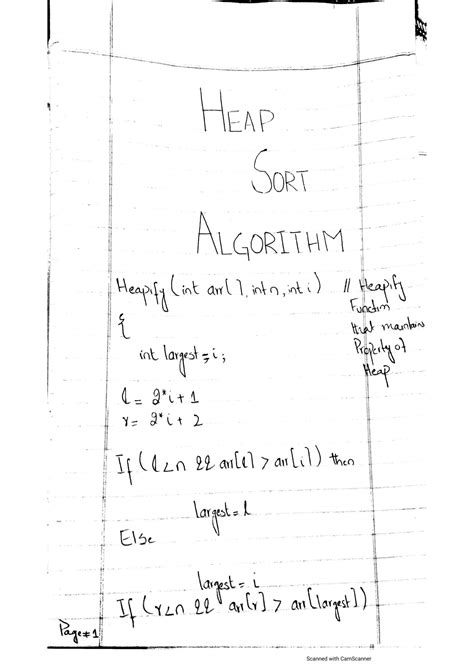 HEAP
SORT
ALGORITHM
Heapify (int arr[], int n, int i) // Heapify
Function
that maintains
Property of
Heap
{
int largest = i;
l = 2*i + 1
r = 2*i + 2
If (l < n && arr[l] > arr[i]) then
largest = l
Else
largest = i
If (r < n && arr[r] > arr[largest])
Page # 1
Scanned with CamScanner